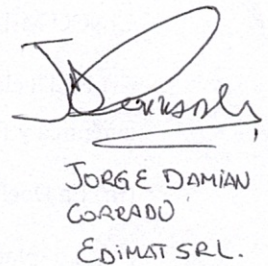 JORGE DAMIAN
CORRADO
EDIMAT SRL.